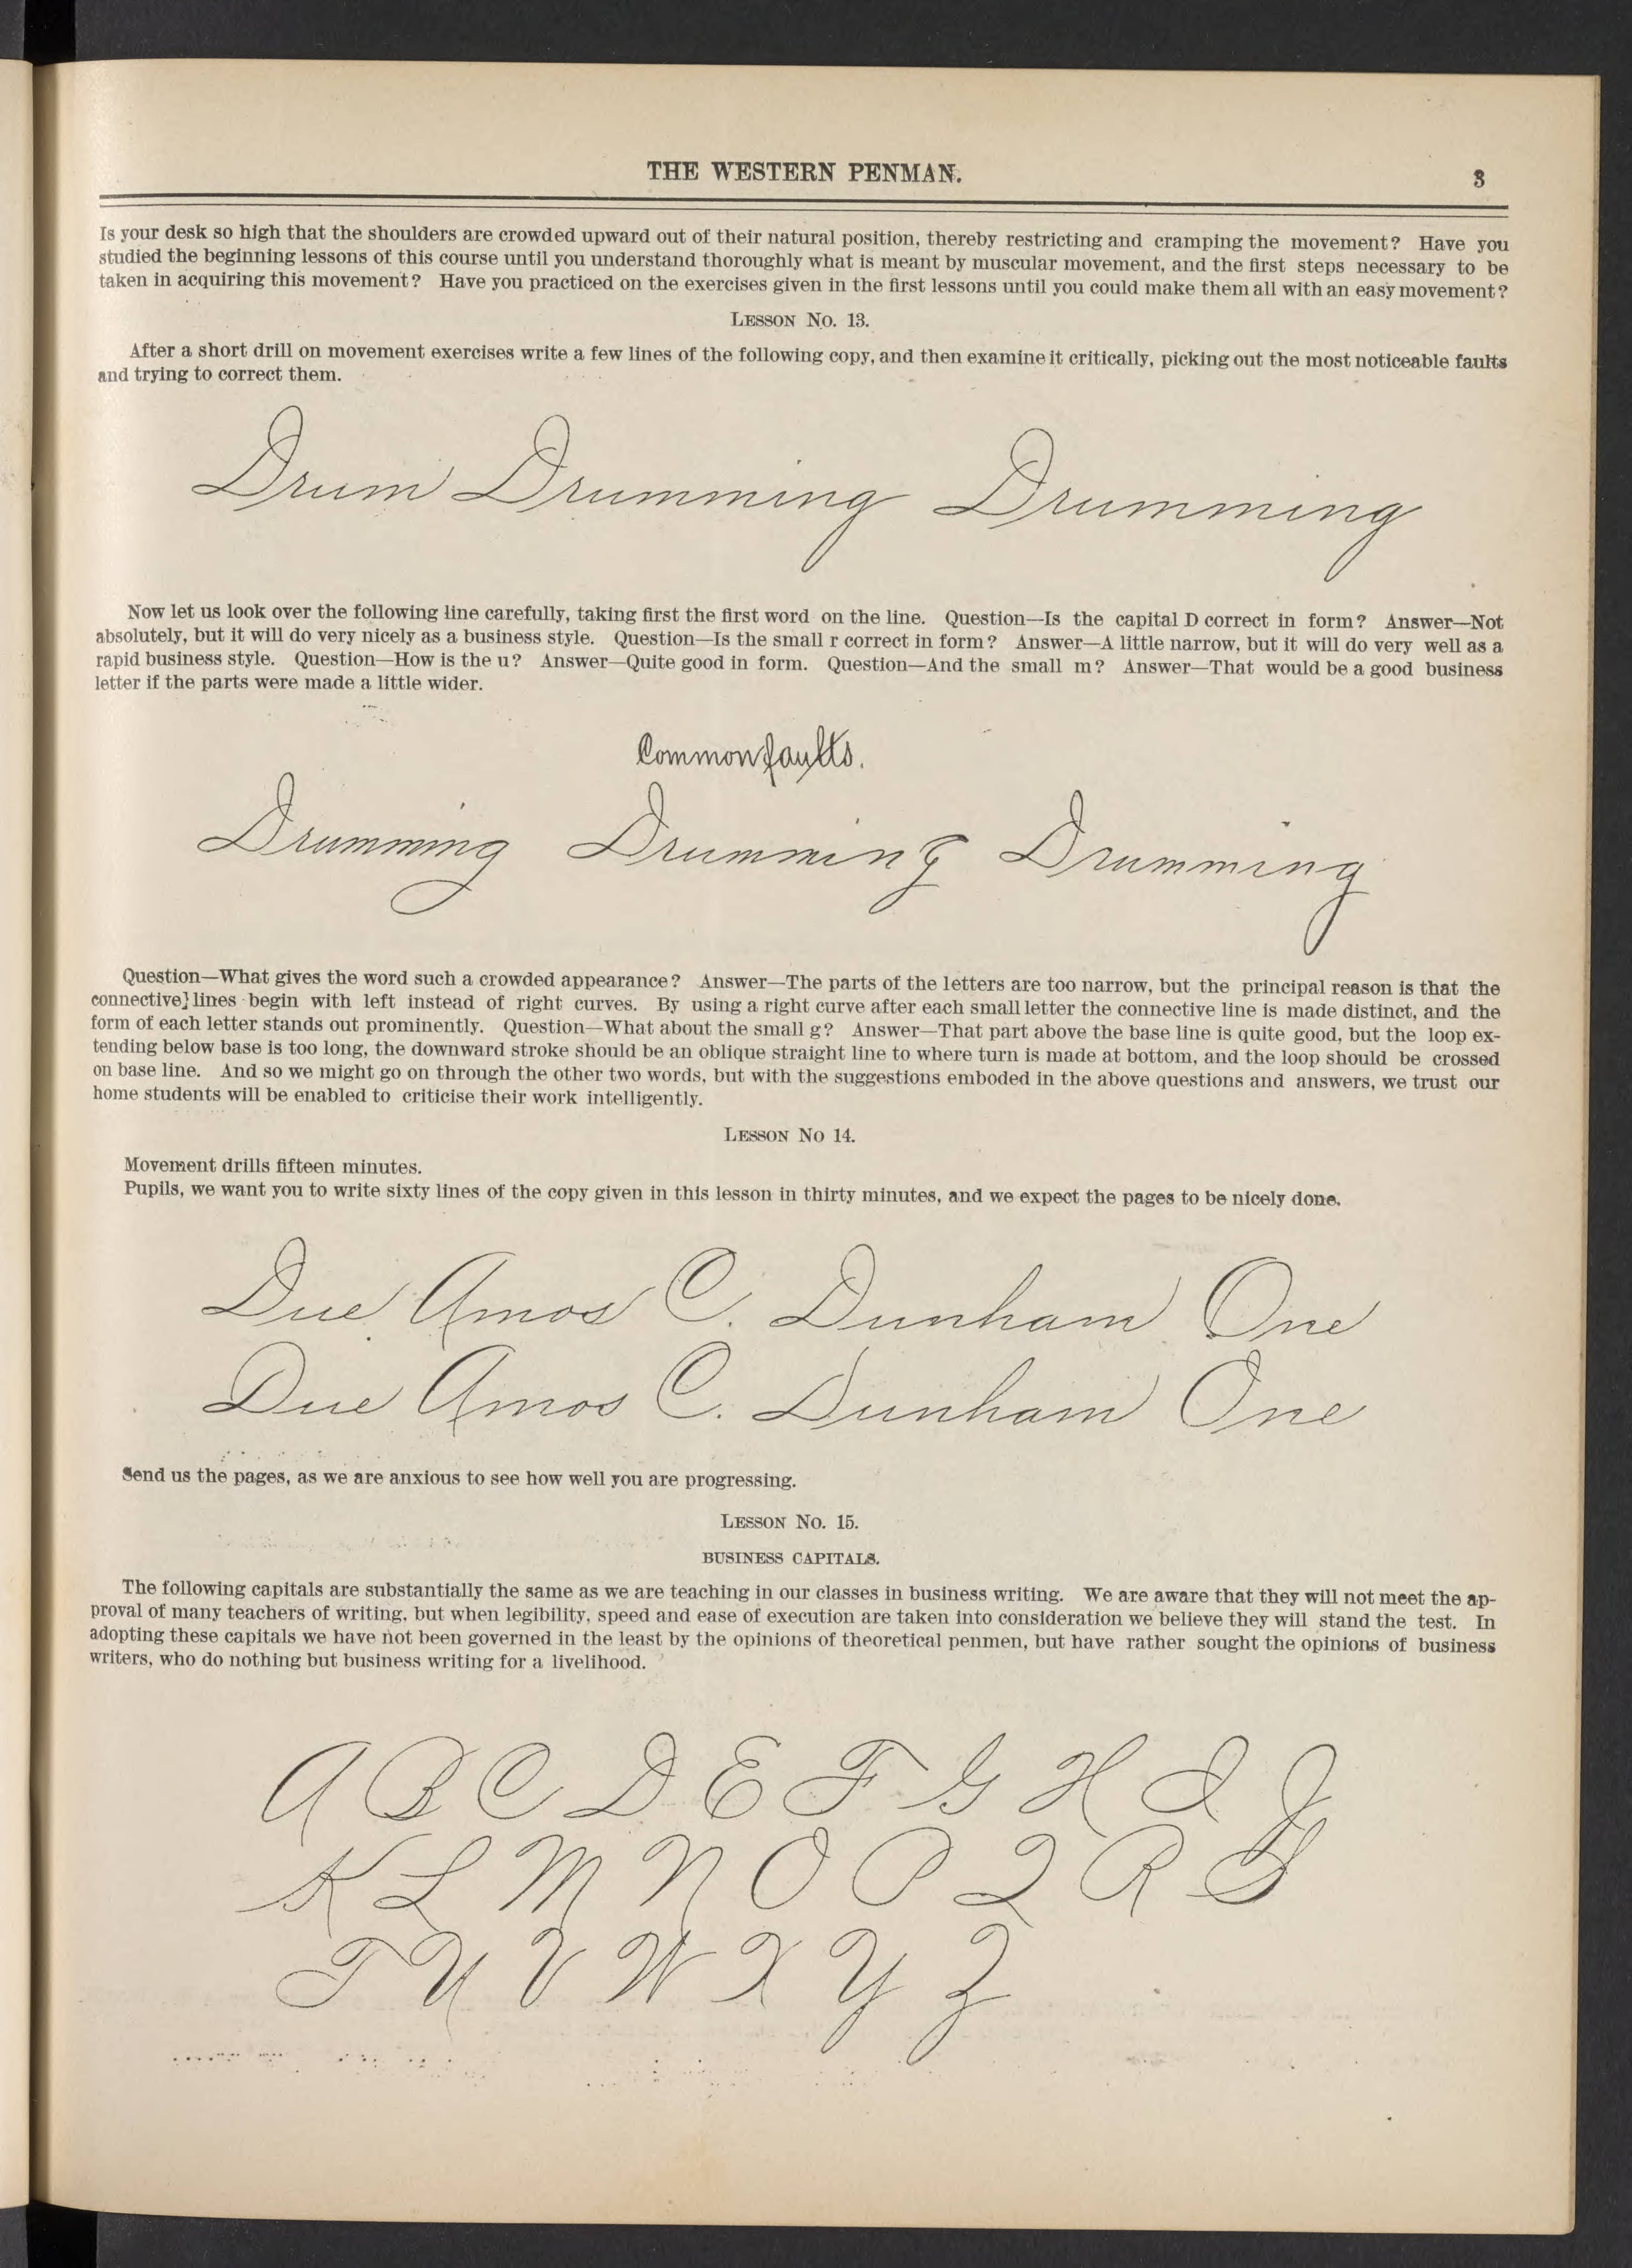 THE WESTERN PENMAN.
3
Is your desk so high that the shoulders are crowded upward out of their natural position, thereby restricting and cramping the movement? Have you
studied the beginning lessons of this course until you understand thoroughly what is meant by muscular movement, and the first steps necessary to be
taken in acquiring this movement? Have you practiced on the exercises given in the first lessons until you could make them all with an easy movement?
LESSON NO. 13.
After a short drill on movement exercises write a few lines of the following copy, and then examine it critically, picking out the most noticeable faults
and trying to correct them.
Drum Drumming Drumming
Now let us look over the following line carefully, taking first the first word on the line. Question—Is the capital D correct in form? Answer—Not
absolutely, but it will do very nicely as a business style. Question—Is the small r correct in form? Answer—A little narrow, but it will do very well as a
rapid business style. Question—How is the u? Answer—Quite good in form. Question—And the small m? Answer—That would be a good business
letter if the parts were made a little wider.
Common faults.
Drumming Drumming Drumming
Question—What gives the word such a crowded appearance? Answer—The parts of the letters are too narrow, but the principal reason is that the
connective] lines begin with left instead of right curves. By using a right curve after each small letter the connective line is made distinct, and the
form of each letter stands out prominently. Question—What about the small g? Answer—That part above the base line is quite good, but the loop ex-
tending below base is too long, the downward stroke should be an oblique straight line to where turn is made at bottom, and the loop should be crossed
on base line. And so we might go on through the other two words, but with the suggestions emboded in the above questions and answers, we trust our
home students will be enabled to criticise their work intelligently.
LESSON NO 14.
Movement drills fifteen minutes.
Pupils, we want you to write sixty lines of the copy given in this lesson in thirty minutes, and we expect the pages to be nicely done.
Due Amos C. Dunham One
Due Amos C. Dunham One
Send us the pages, as we are anxious to see how well you are progressing.
LESSON NO. 15.
BUSINESS CAPITALS.
The following capitals are substantially the same as we are teaching in our classes in business writing. We are aware that they will not meet the ap-
proval of many teachers of writing, but when legibility, speed and ease of execution are taken into consideration we believe they will stand the test. In
adopting these capitals we have not been governed in the least by the opinions of theoretical penmen, but have rather sought the opinions of business
writers, who do nothing but business writing for a livelihood.
A B C D E F G H I J
K L M N O P Q R S
T U V W X Y Z